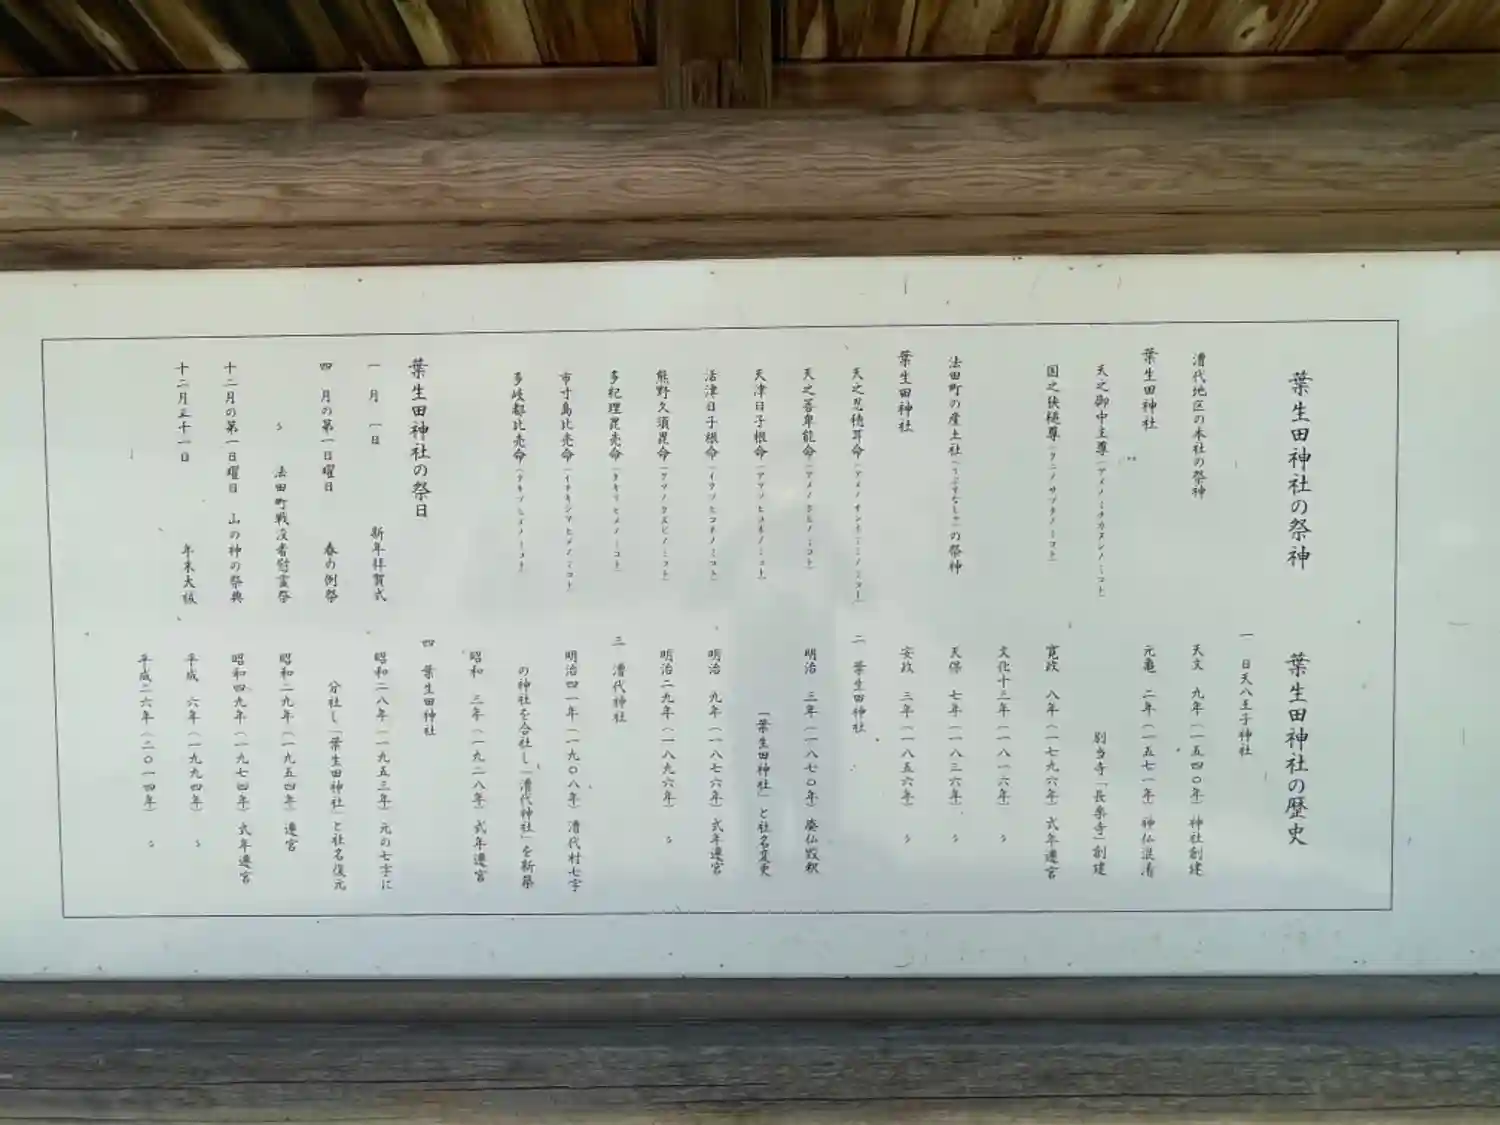 葉生田神社の祭神
漕代地区の本社の祭神
葉生田神社
天之御中主尊(アメノミナカヌシノミコト)
国之狭槌尊(クニノサヅチノミコト)
法田町の産土社(うぶすなしゃ)の祭神
葉生田神社
天之忍穂耳命
天之菩卑能命(アメノホヒノミコト)
天津日子根命(アマツヒコネノミコト)
活津日子根命(イクツヒコネノミコト)
熊野久須毘命(クマノクスビノミコト)
多紀理毘売命(タキリヒメノミコト)
市寸島比売命(イチキシマヒメノミコト)
多岐都比売命(タキツヒメノミコト)
葉生田神社の祭日
一月一日 新年拝賀式
四月の第一日曜日 春の例祭
〃 法田町戦没者慰霊祭
十二月の第一日曜日 山の神の祭典
十二月三十一日 年末大祓
葉生田神社の歴史
一 日天八王子神社
天文 九年(一五四〇年)神社創建
元亀 二年(一五七一年)神仏混淆
別当寺「長楽寺」創建
寛政 八年(一七九六年)式年遷宮
文化十三年(一八一六年) 〃
天保 七年(一八三六年) 〃
安政 三年(一八五六年) 〃
二 葉生田神社
明治 三年(一八七〇年)廃仏毀釈
「葉生田神社」と社名変更
明治 九年(一八七六年)式年遷宮
明治二九年(一八九六年) 〃
三 漕代神社
明治四一年(一九〇八年)漕代村七字
の神社を合社し「漕代神社」を新築
昭和 三年(一九二八年)式年遷宮
四 葉生田神社
昭和二八年(一九五三年)元の七字に
分社し「葉生田神社」と社名復元
昭和二九年(一九五四年)遷宮
昭和四九年(一九七四年)式年遷宮
平成 六年(一九九四年) 〃
平成二六年(二〇一四年) 〃